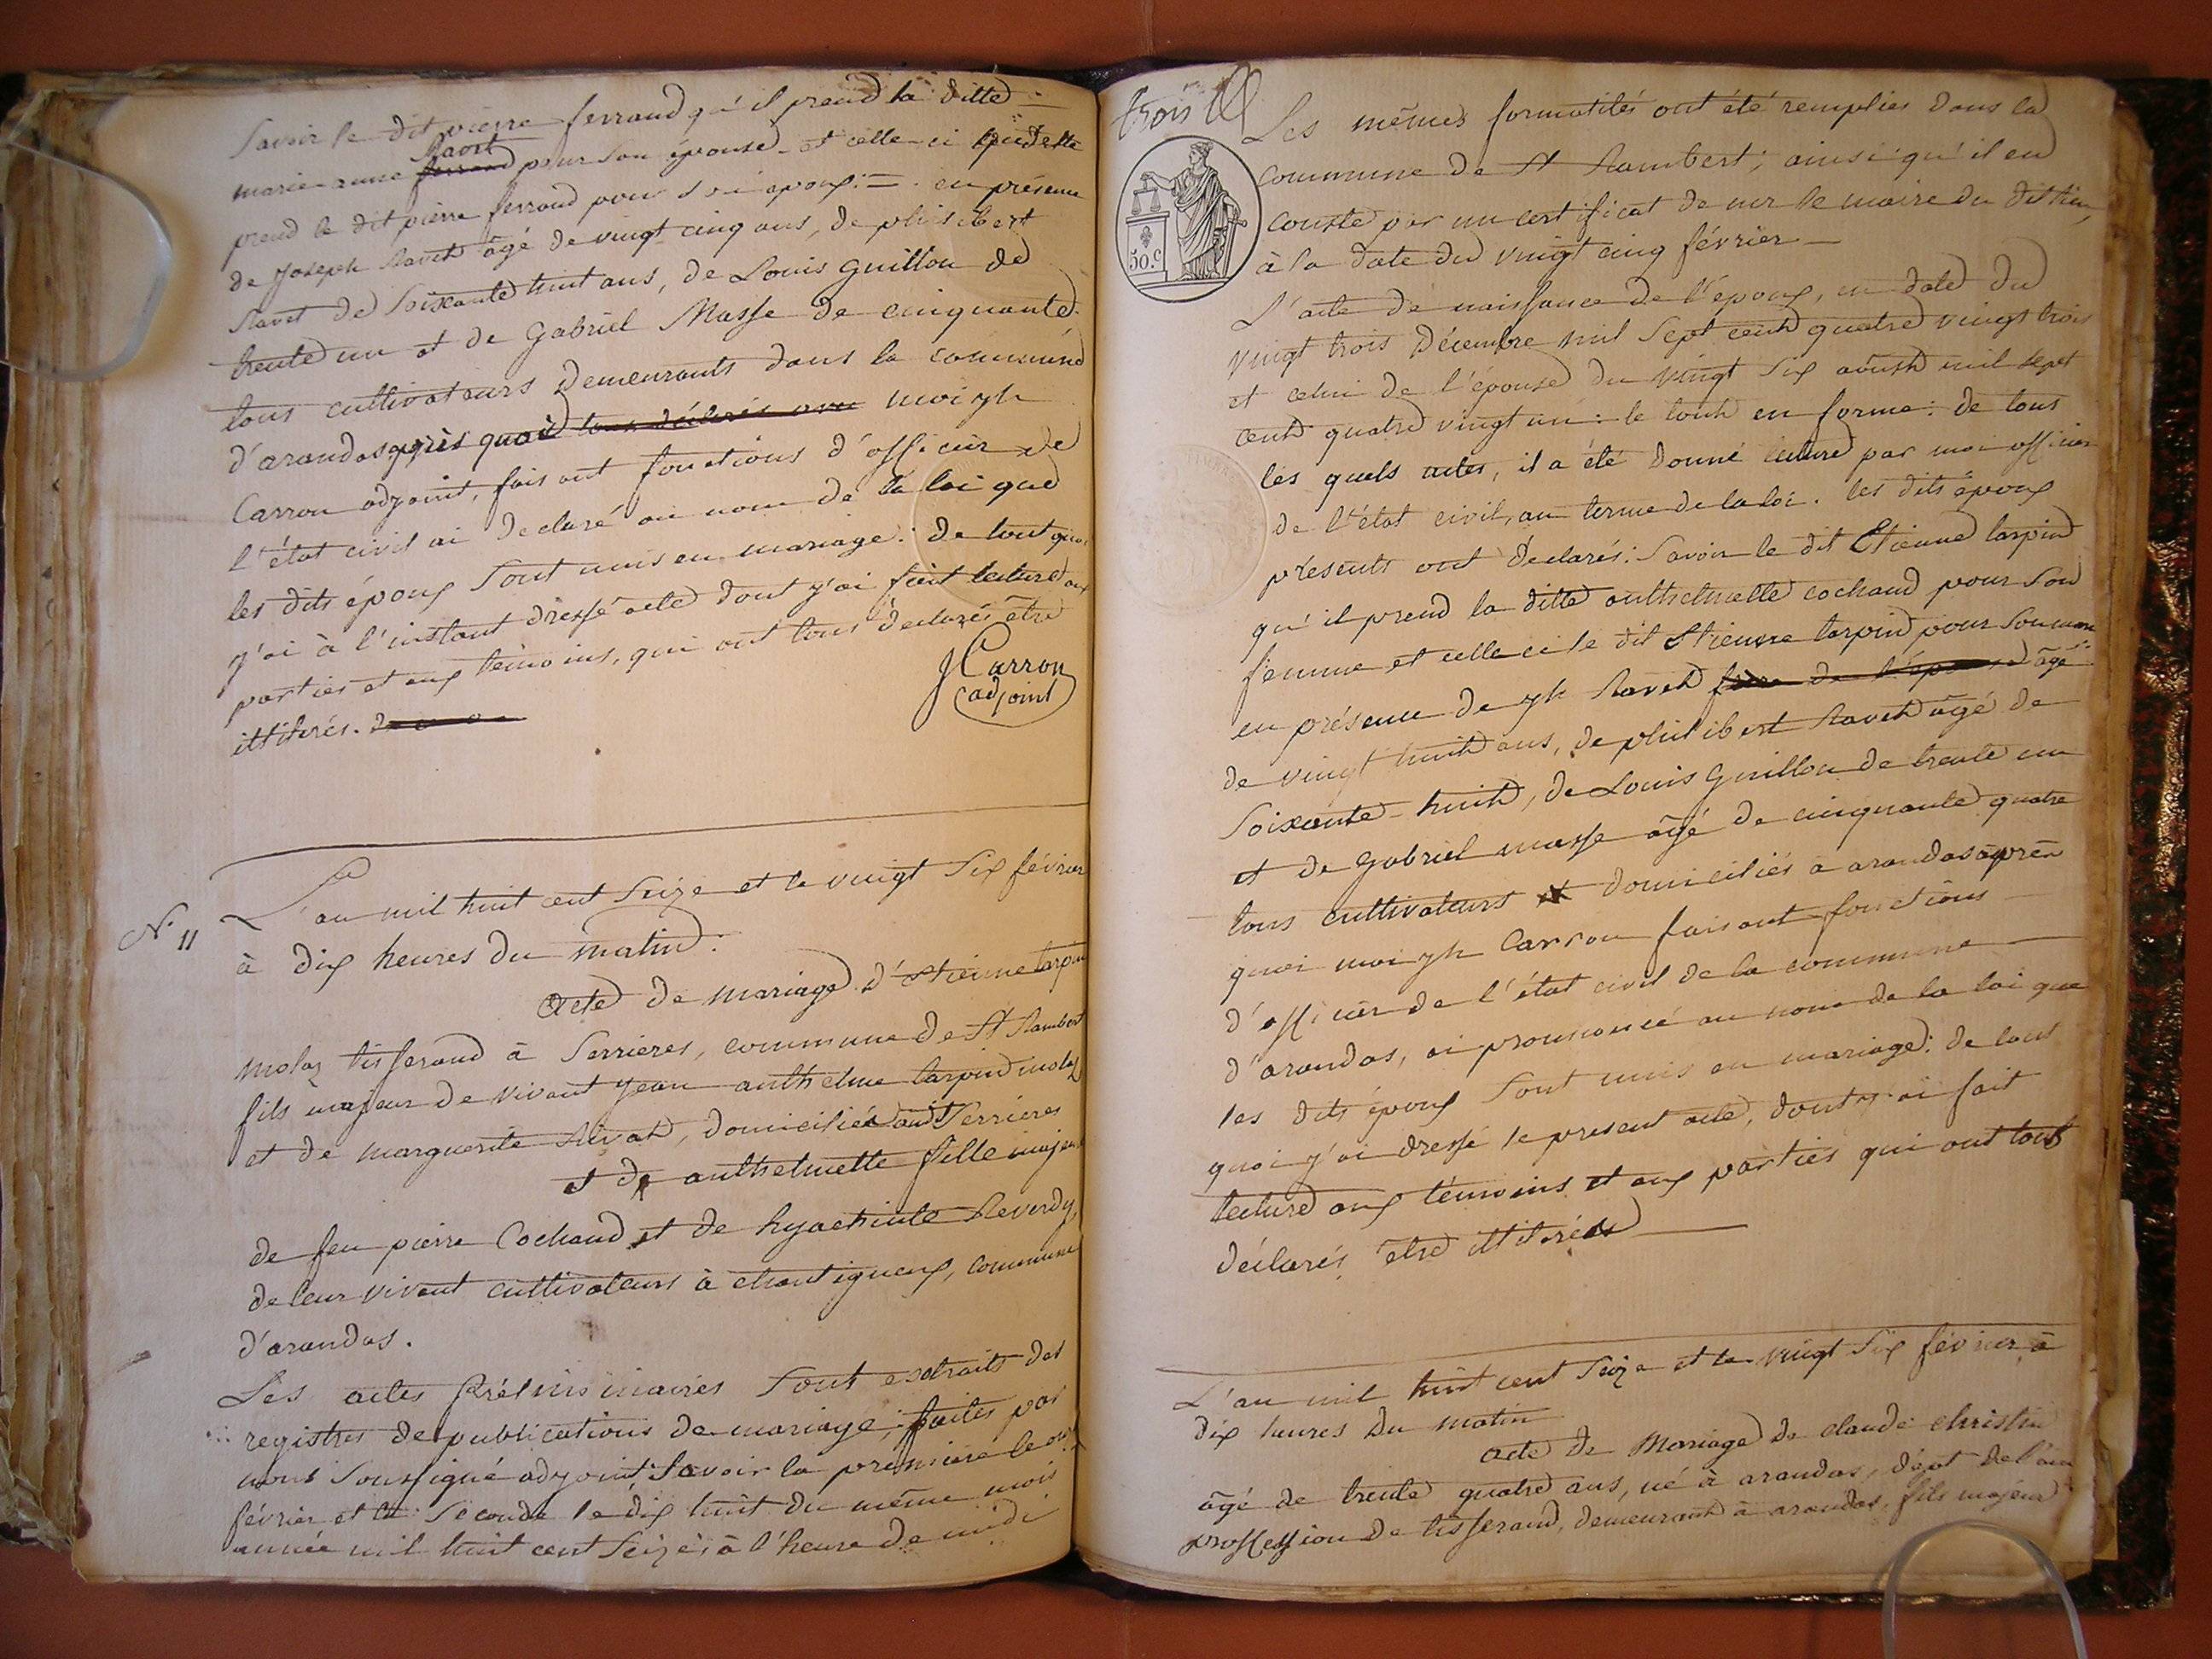 Savoir le dit pierre ferrand qu'il prend la ditte
marie anne ferrand Ravet pour son épouse et celle-ci
prend le dit pierre ferrand pour son epoux : = . en présence
de Joseph Ravet âgé de vingt cinq ans, de philibert
Ravet de Soixante huit ans, de Louis Guillon de
trente un et de Gabriel Masse de cinquante
tous cultivateurs demeurants dans la commune
d'arandas après quoi moi jh
Carron adjoint, faisant fonctions d'officier de
l'état civil ai declaré au nom de la loi que
les dits époux sont unis en mariage : de tout quoi
j'ai à l'instant dressé acte dont j'ai fait lecture aux
parties et aux témoins, qui ont tous déclarés être
illitérés.
JCarron
adjoint
N.° 11
L'an mil huit cent Seize et le vingt Six février
à dix heures du matin.
Acte de mariage d'Etienne tarpin
molaz tisserand à Serrieres, commune de St Rambert
fils majeur de vivant jean anthelme tarpin molaz
et de marguerite Rivat, domiciliés audt Serrieres
et de anthelmette fille majeure
de feu pierre Cochand et de hyachinte Reverdy,
de leur vivant cultivateurs à chantigneux, commune
d'arandas.
Les actes Préliminaires sont extraits des
registres de publications de mariage, faites par
nous soussigné adjoint Savoir la premiere le
février et la Seconde le dix huit du même mois
année mil huit cent Seize, à l'heure de midi
trois
50.c
Les mêmes formatités ont été remplies dans la
commune de St Rambert, ainsi qu'il en
conste par un certificat de mr le maire du dit lieu,
à la date du vingt cinq février —
L'acte de naissance de l'époux, en date du
vingt trois Décembre mil Sept cent quatre vingt trois
et celui de l'épouse du vingt Six août mil sept
cent quatre vingt un : le tout en forme : de tous
les quels actes, il a été donné lecture par moi officier
de l'état civil, au terme de la loi. les dits époux
présents ont déclarés : Savoir le dit Etienne tarpin
qu'il prend la ditte anthelmette cochand pour Son
femme et celle ci le dit Etienne tarpin pour Son mari
en présence de jh Ravet frère de l'épouse âgé
de vingt huit ans, de philibert Ravet âgé de
Soixante-huit, de Louis Guillon de trente un
et de gabriel masse âgé de cinquante quatre
tous cultivateurs et domiciliés a arandas après
quoi moi jh Carron faisant fonctions
d'officier de l'état civil de la commune
d'arandas, ai prononcé au nom de la loi que
les dits époux Sont unis en mariage : de tout
quoi j'ai dressé le present acte, dont j'ai fait
lecture aux témoins et aux parties qui ont tous
déclarés être illitérés
L'an mil huit cent Seize et le vingt Six février à
dix heures du matin
acte de Mariage de claude christin
âgé de trente quatre ans, né à arandas, dépt de l'ain
proffession de tisserand, demeurant à arandas, fils majeur